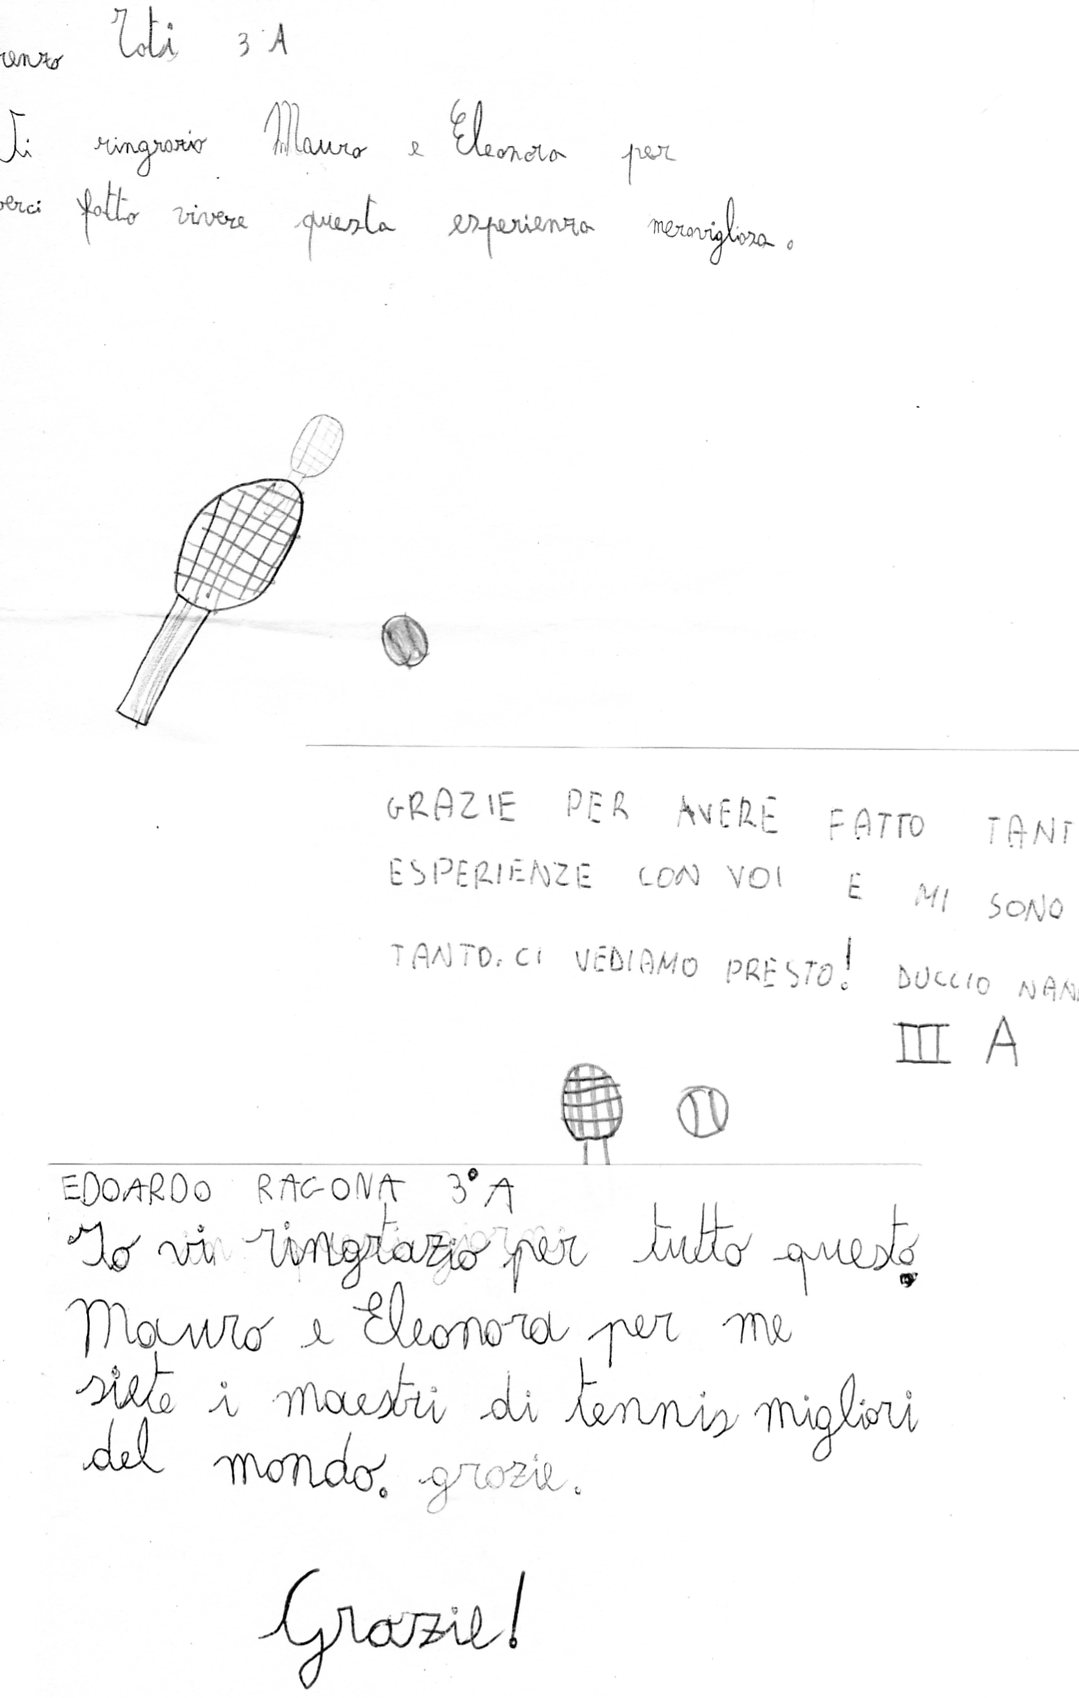 renzo Toti 3ªA
Ti ringrazio Mauro e Eleonora per
verci fatto vivere questa esperienza meravigliosa.
GRAZIE PER AVERE FATTO TANT
ESPERIENZE CON VOI E MI SONO
TANTO. CI VEDIAMO PRESTO! DUCCIO NANN
III A
EDOARDO RAGONA 3°A
Io vi ringrazio per tutto questo.
Mauro e Eleonora per me
siete i maestri di tennis migliori
del mondo. grazie.
Grazie!